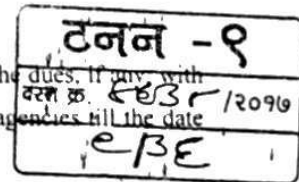 टनन - ९
he dues, if any, with
दस्त क्र. /२०१७
agencies till the date